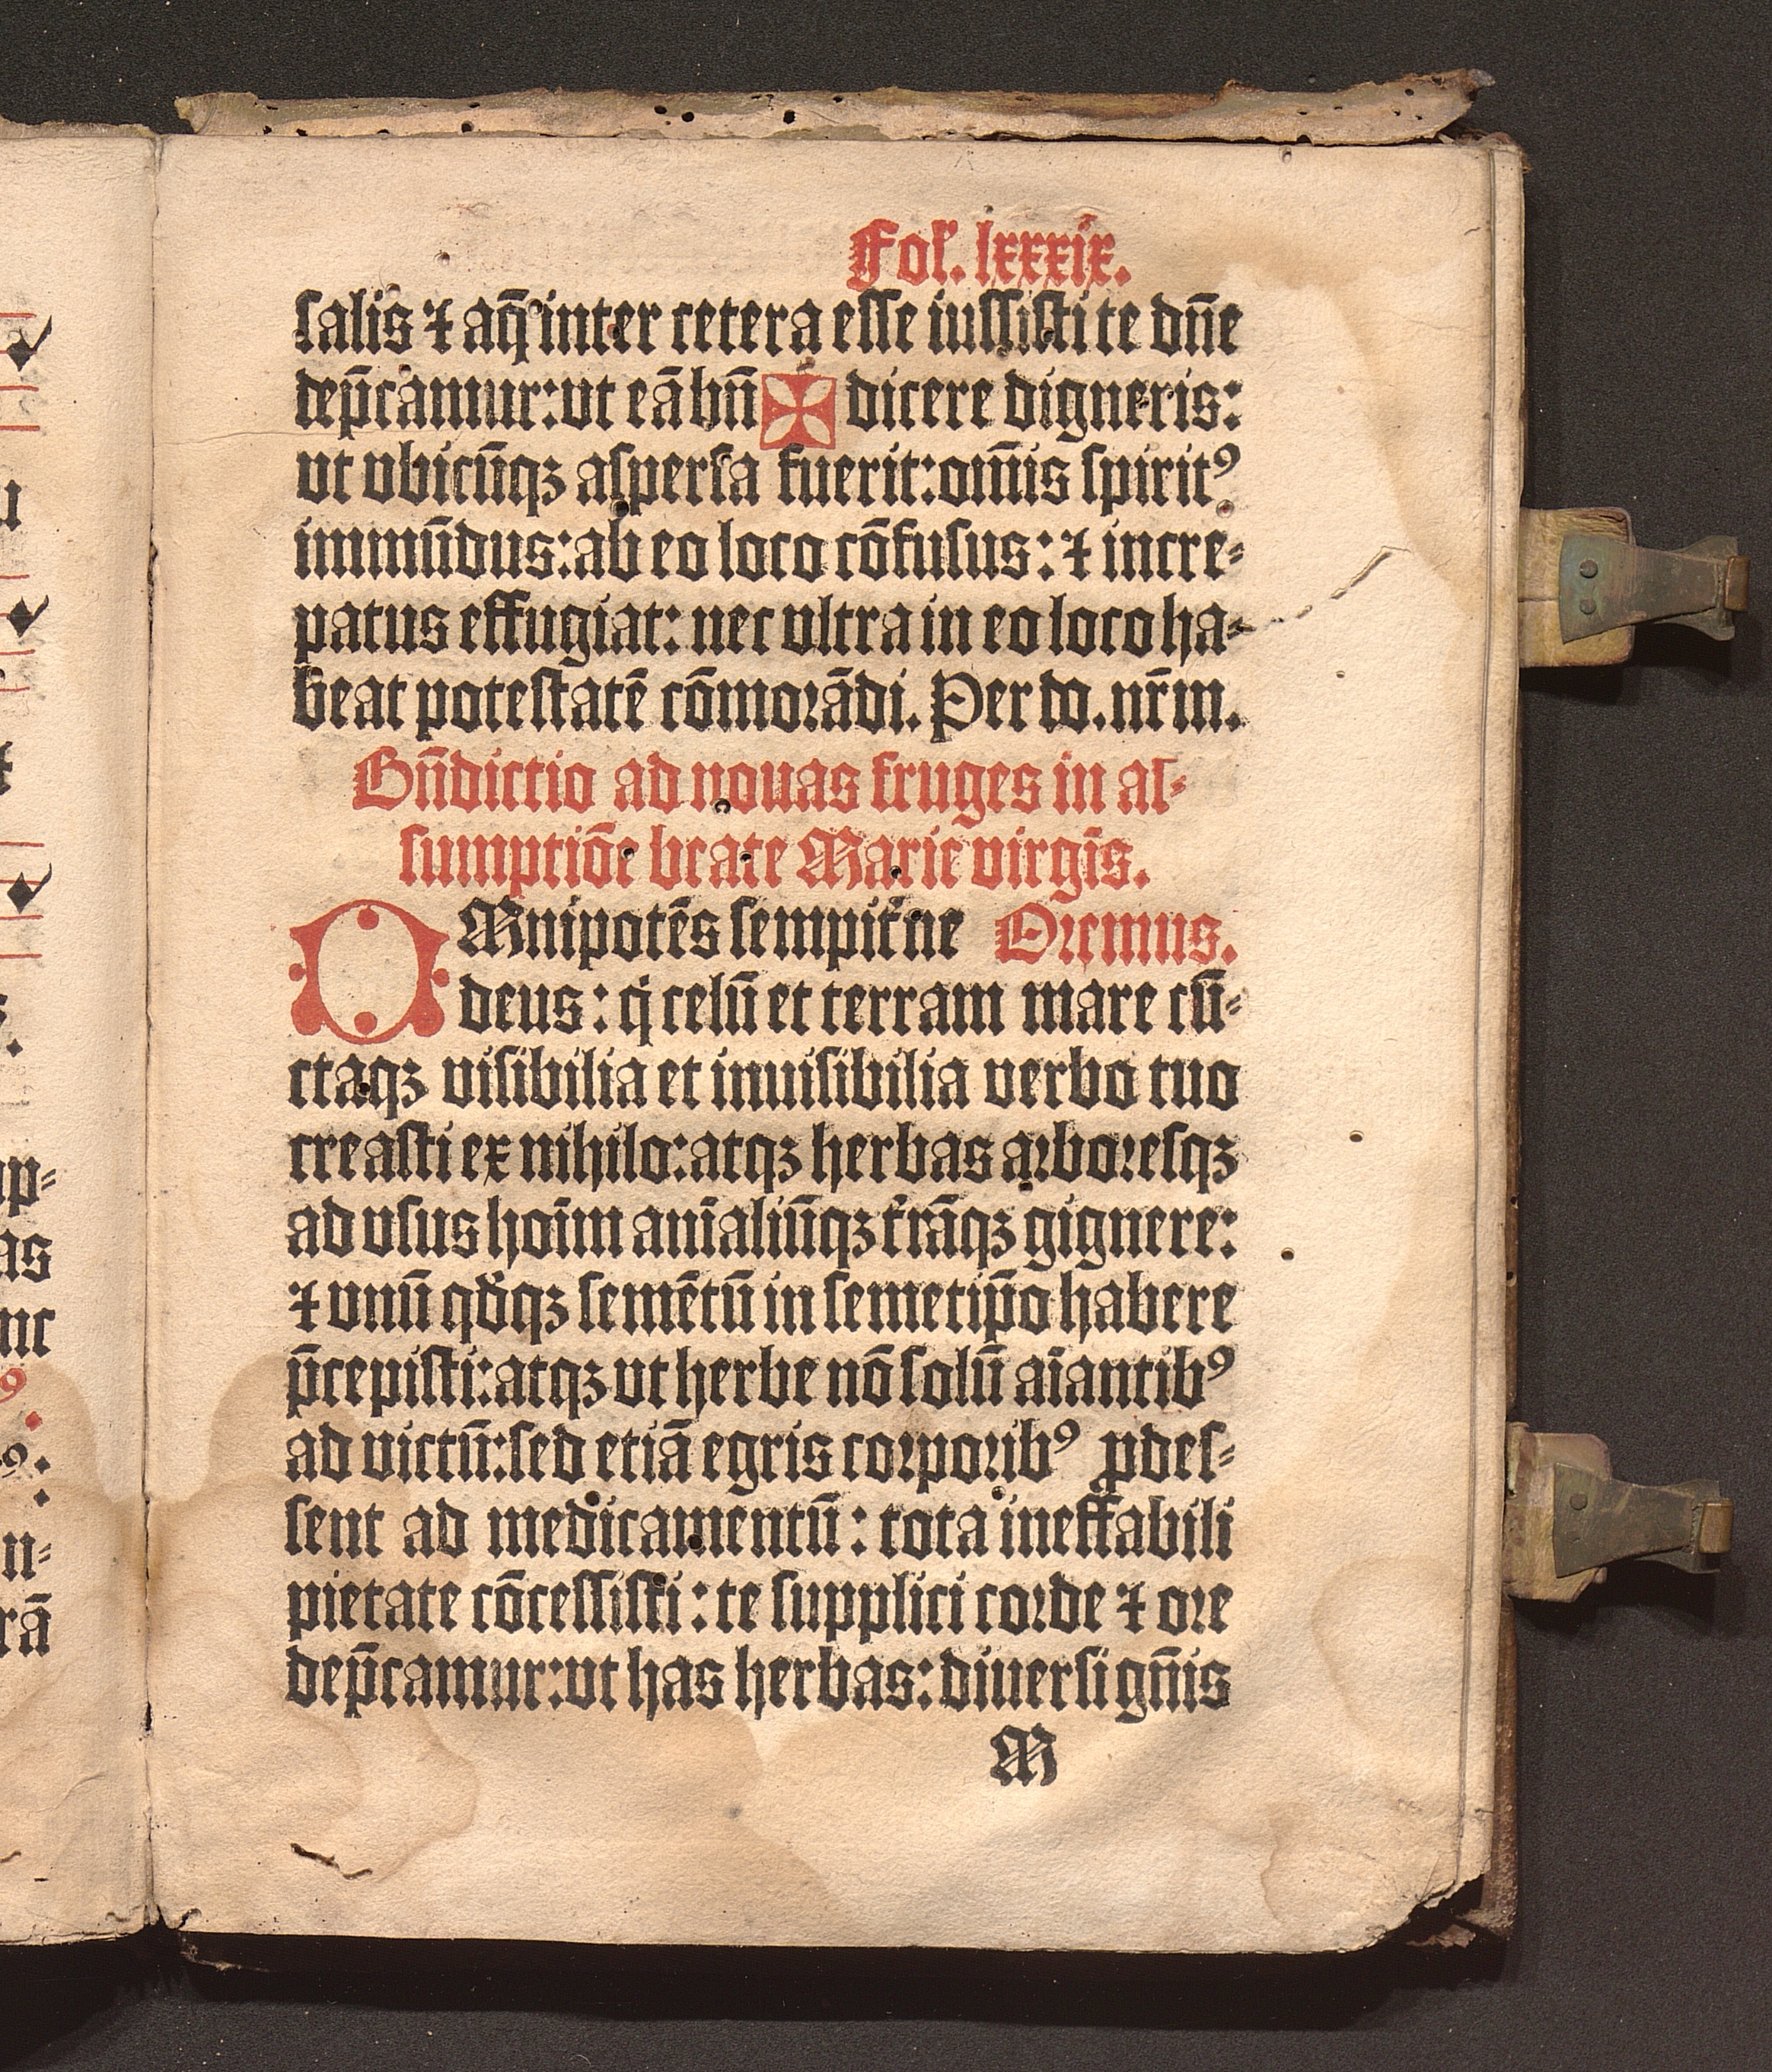 Fol’. lxxxix.
salis ⁊ aq̄ inter cetera esse iussisti te dn̄e
dep̄camur: vt eā bn̄ ✠ dicere digneris:
vt vbicūqꝫ aspersa fuerit: om̄is spiritꝰ
immūdus: ab eo loco cōfusus: ⁊ incre⸗
patus effugiat: nec vltra in eo loco ha⸗
beat potestatē cōmorādi. Per do. nr̄m.
Bn̄dictio ad nouas fruges in as⸗
sumptiōe beate Marie virgīs.
OMnipotēs sempit̄ne Oremus.
deus: q̇ celū et terram mare cū⸗
ctaqꝫ visibilia et inuisibilia verbo tuo
creasti ex nihilo: atqꝫ herbas arboresqꝫ
ad vsus hoīm anīaliūqꝫ t̄rāqꝫ gignere:
⁊ vnū qd̄qꝫ semētū in semetip̄o habere
p̄cepisti: atqꝫ vt herbe nō solū aīantibꝰ
ad victū: sed etiā egris corporibꝰ ꝓdes⸗
sent ad medicamentū: tota ineffabili
pietate cōcessisti: te supplici corde ⁊ ore
dep̄camur: vt has herbas: diuersi gn̄is
M